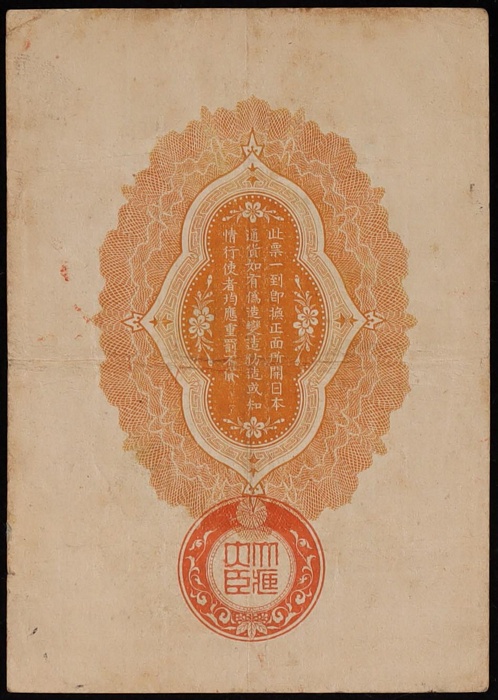 此票一到即換正面所開日本
通貨如有偽造變造仿造或知
情行使者均應重罰不貸
大藏
大臣